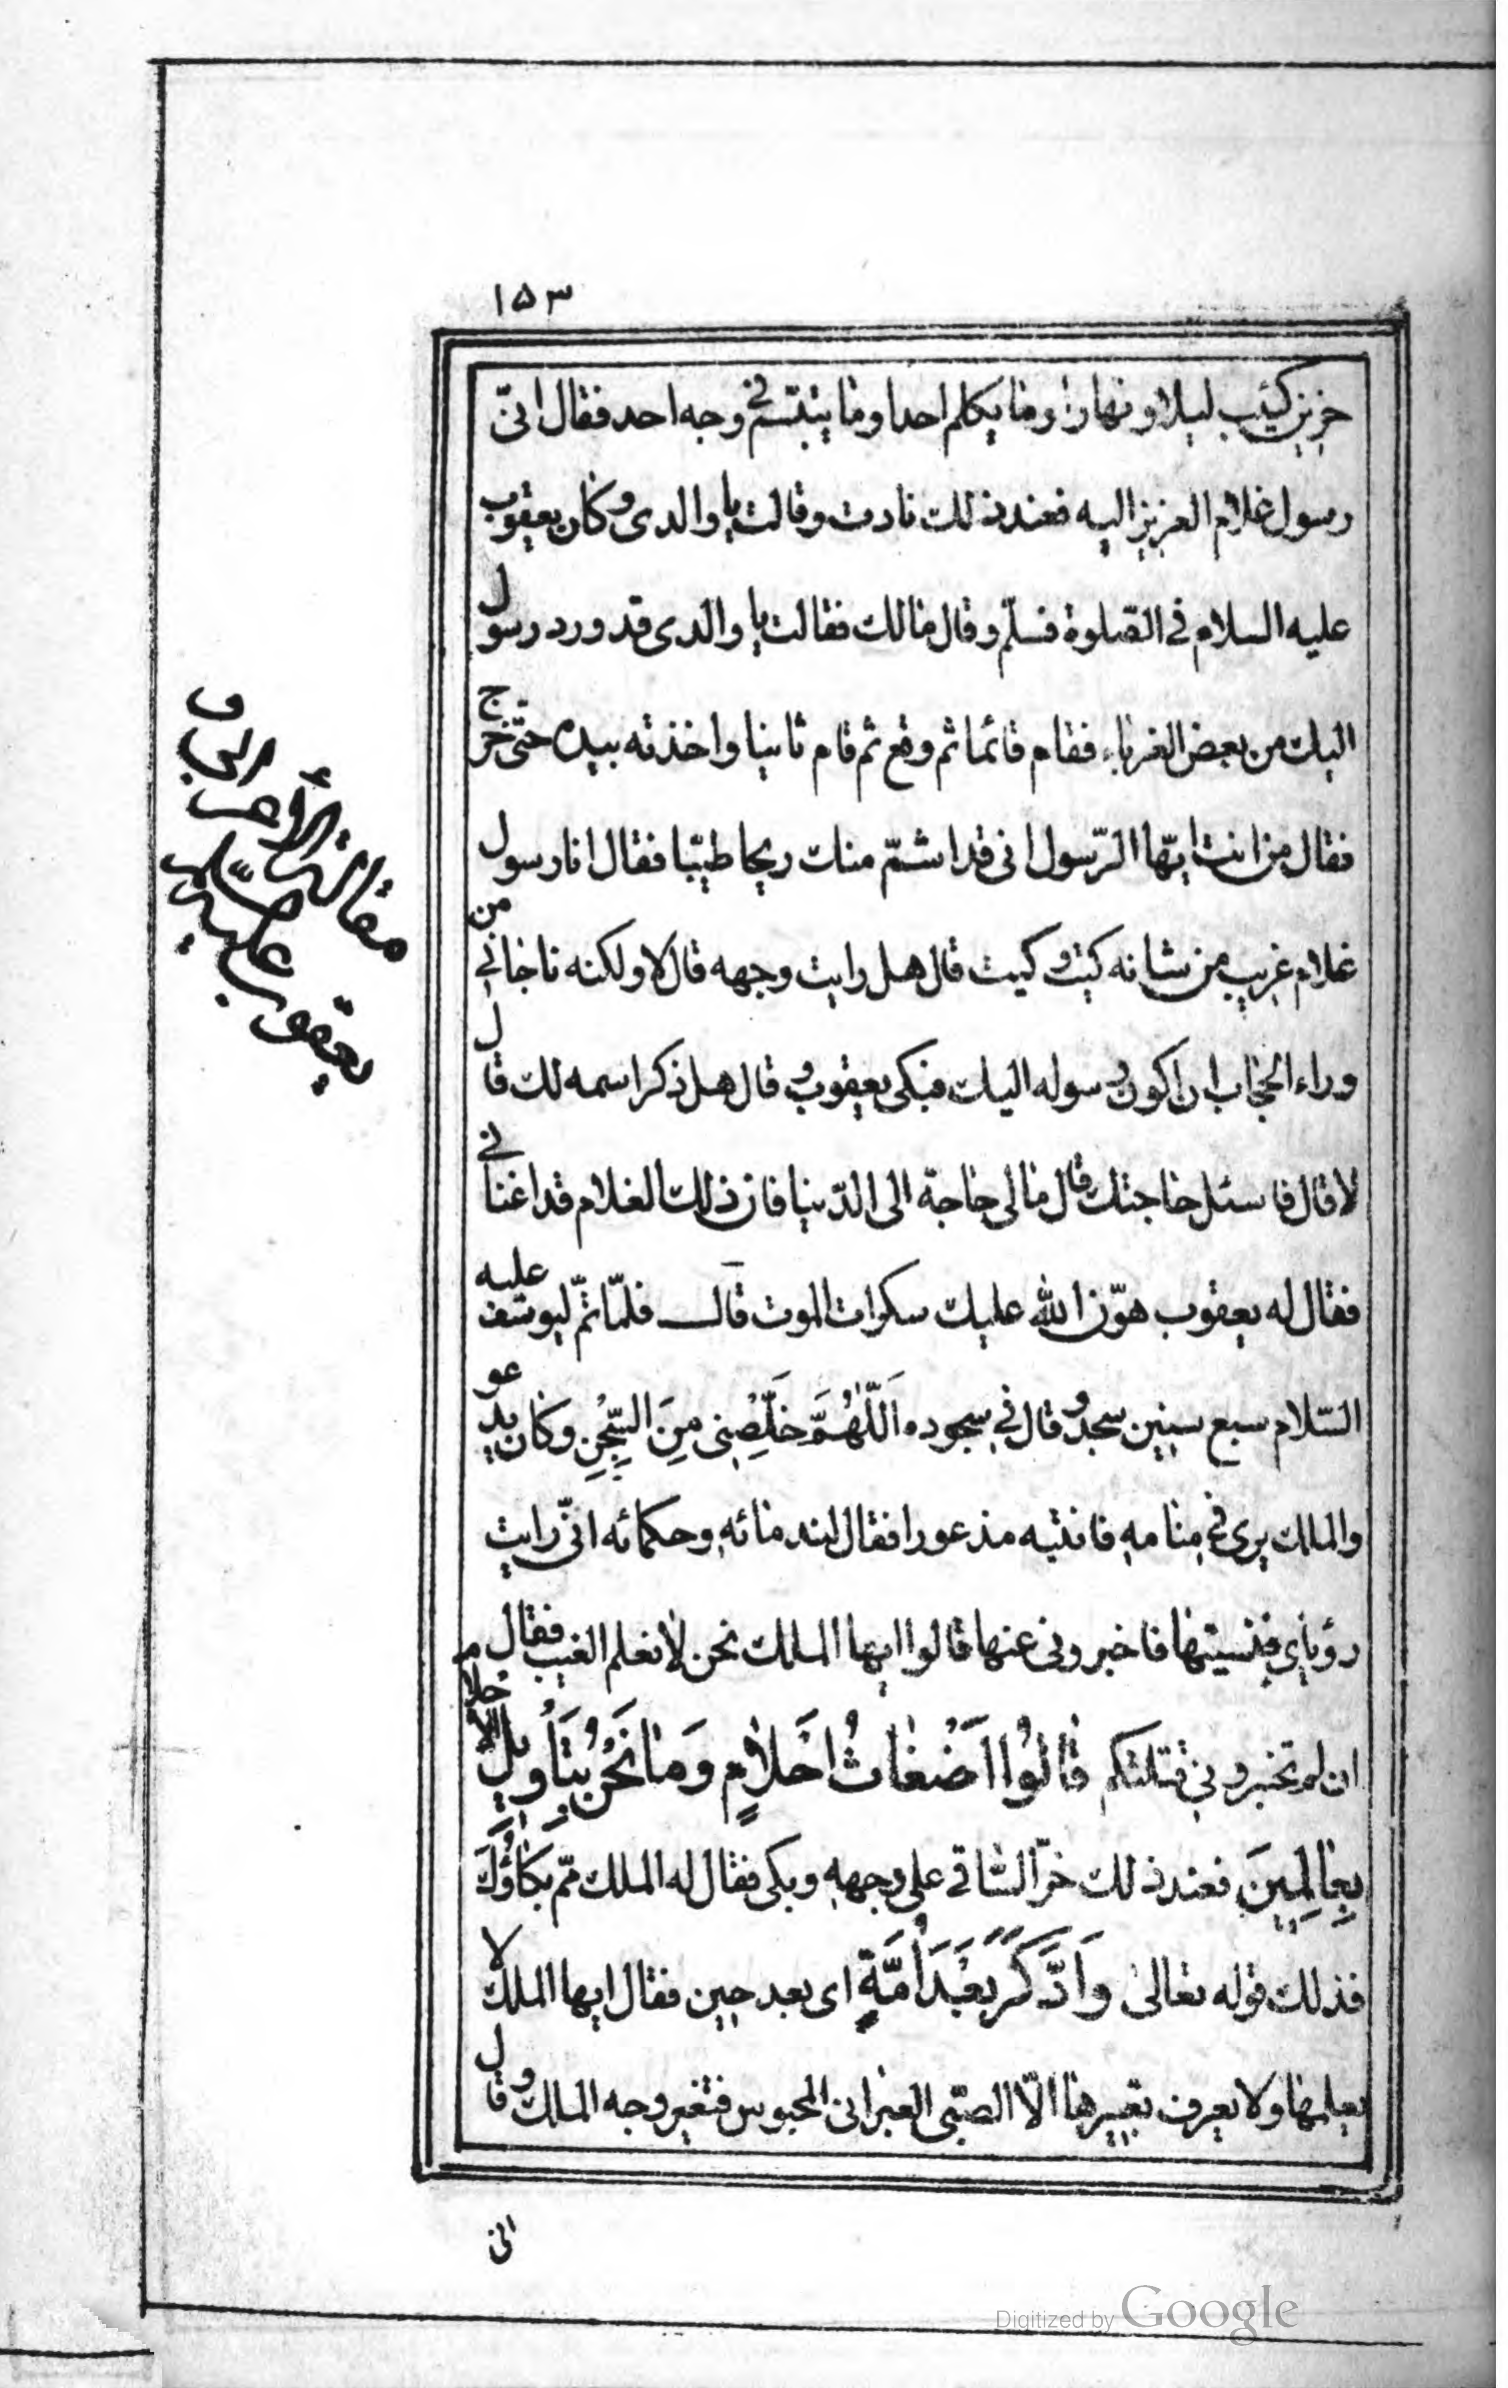 ١٥٣
حزين كئيب ليلا ونهارا وما يكلم احدا وما يتبسّم في وجه احد فقال انّى
رسول غلام العزيز اليه فعند ذلك نادت وقالت يا والدى وكان يعقوب
عليه السلام في الصّلوة فسلّم وقال مالك فقالت يا والدى قد ورد رسول
اليك من بعض الغرباء فقام قائما ثم وقع ثم قام ثانيا واخذته بيده حتّى خرج
فقال من انت ايّها الرّسول انى قد اشمّ منك ريحا طيّبا فقال انا رسول
غلام غريب من شانه كيت وكيت قال هل رايت وجهه قال لا ولكنه ناجانى من
وراء الحجاب ان اكون رسوله اليك فبكى يعقوب وقال هل ذكر اسمه لك قال
لا قال فاسئل حاجتك قال مالى حاجة الى الدّنيا فان ذلك الغلام قد اغنانى
فقال له يعقوب هوّن الله عليك سكرات الموت قال فلمّا تمّ ليوسف عليه
السّلام سبع سنين سجد وقال في سجوده اَللّٰهُمَّ خَلِّصْنِى مِنَ السِّجْنِ وكان يدعو
والملك يرى في منامه فانتبه مذعورا فقال لندمائه وحكمائه انّى رايت
رؤياى فنسيتها فاخبرونى عنها قالوا ايها الملك نحن لا نعلم الغيب فقال
ان لم تخبرونى قتلتكم قٰالُوا اَضْغٰاثُ اَحْلاٰمٍ وَمٰا نَحْنُ بِتَأْوِيلِ الاحلام
بِعٰالِمِينَ فعند ذلك خرّ السّاقى على وجهه وبكى فقال له الملك ممّ بكاؤك
فذلك قوله تعالى وَادَّكَرَ بَعْدَ اُمَّةٍ اى بعد حين فقال ايها الملك لا
يعلمها ولا يعرف تعبيرها الّا الصّبى العبرانى المحبوس فتغير وجه الملك وقال
انى
مقالة الأعرابى و
يعقوب عليه السّلم
Digitized by Google